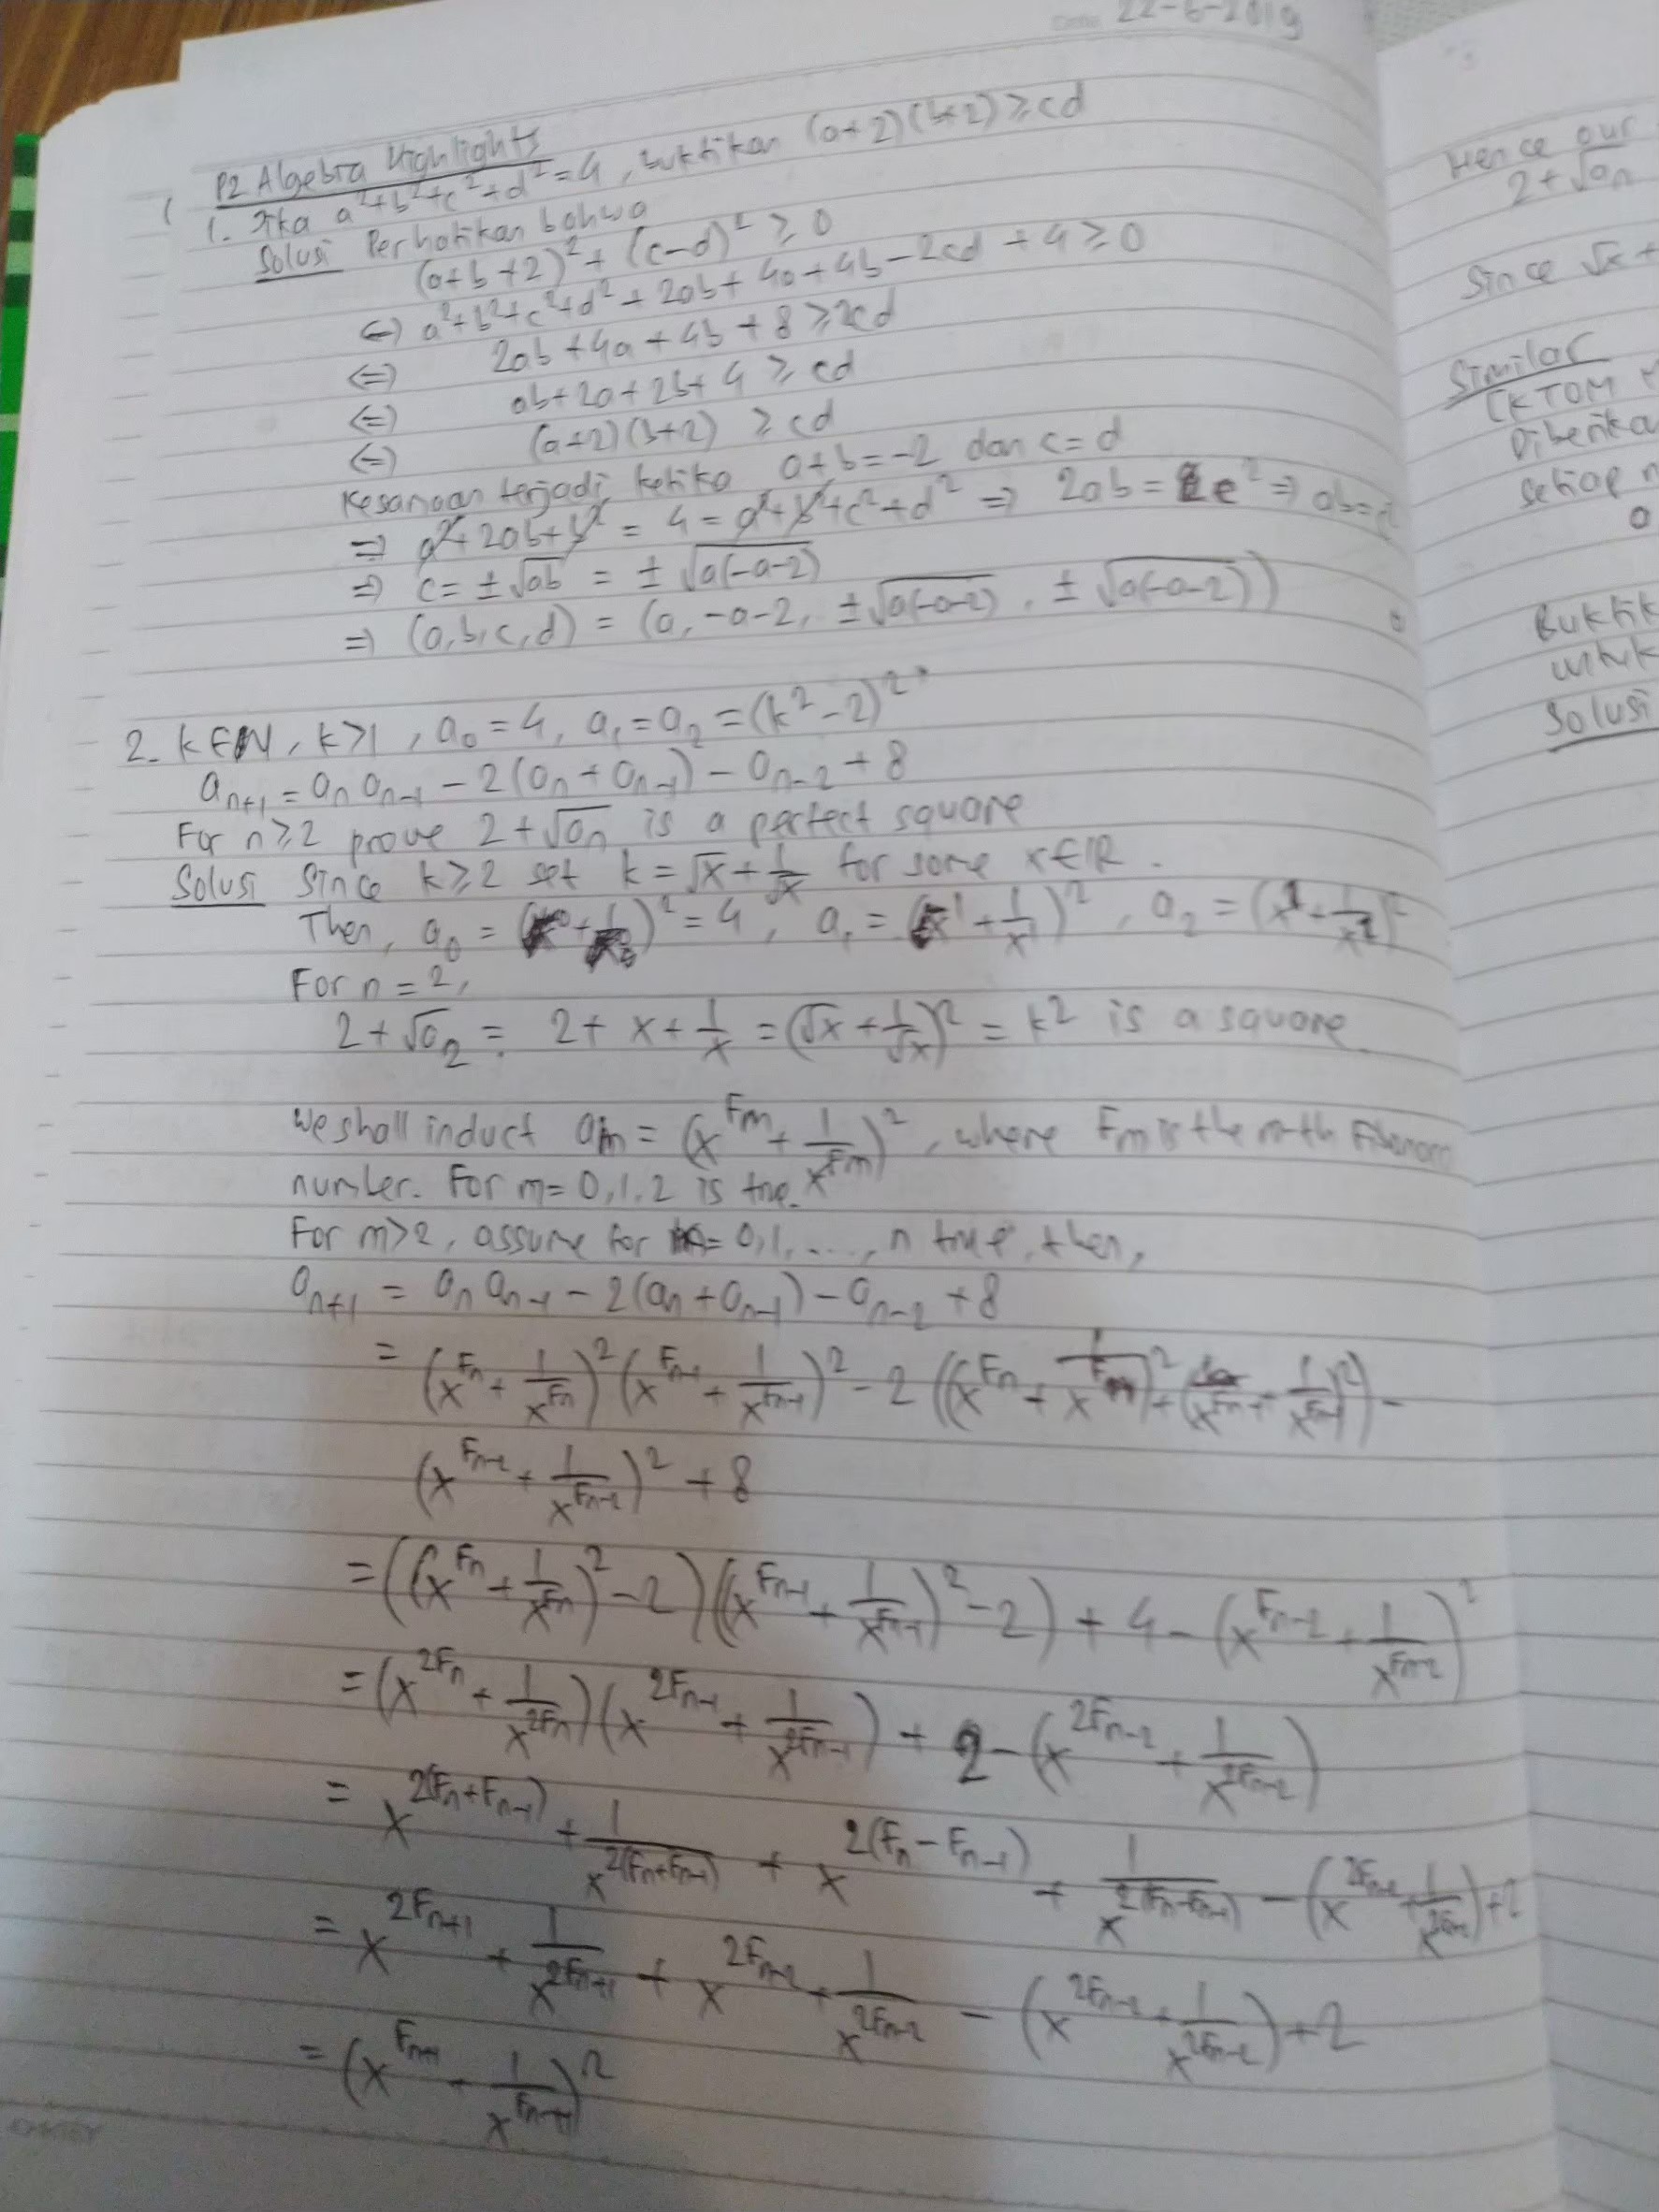 Date 22-6-2019
P2 Algebra Highlights
1. Jika a²+b²+c²+d²=4, buktikan (a+2)(b+2)≥cd
Solusi Perhatikan bahwa
(a+b+2)²+(c-d)²≥0
⇔ a²+b²+c²+d²+2ab+4a+4b-2cd+4≥0
⇔ 2ab+4a+4b+8≥2cd
⇔ ab+2a+2b+4≥cd
⇔ (a+2)(b+2)≥cd
Kesamaan terjadi ketika a+b=-2 dan c=d
⇒ a²+2ab+b²=4=a²+b²+c²+d² ⇒ 2ab=2c² ⇒ ab=c
⇒ c=±√ab=±√(a(-a-2))
⇒ (a,b,c,d)=(a,-a-2,±√(a(-a-2)),±√(a(-a-2)))
2. k∈N, k>1, a₀=4, a₁=a₂=(k²-2)²
aₙ₊₁=aₙaₙ₋₁-2(aₙ+aₙ₋₁)-aₙ₋₂+8
For n≥2 prove 2+√aₙ is a perfect square
Solusi Since k≥2 set k=√x+1/√x for some x∈R.
Then, a₀=(x⁰+1/x⁰)²=4, a₁=(x¹+1/x¹)², a₂=(x¹+1/x¹)²
For n=2,
2+√a₂=2+x+1/x=(√x+1/√x)²=k² is a square
We shall induct aₘ=(x^Fₘ+1/x^Fₘ)², where Fₘ is the m-th
number. For m=0,1,2 is true.
For m>2, assume for m=0,1,...,n true, then,
aₙ₊₁=aₙaₙ₋₁-2(aₙ+aₙ₋₁)-aₙ₋₂+8
=(x^Fₙ+1/x^Fₙ)²(x^Fₙ₋₁+1/x^Fₙ₋₁)²-2((x^Fₙ+1/x^Fₙ)²+(x^Fₙ₋₁+1/x^Fₙ₋₁)²)-
(x^Fₙ₋₂+1/x^Fₙ₋₂)²+8
=((x^Fₙ+1/x^Fₙ)²-2)((x^Fₙ₋₁+1/x^Fₙ₋₁)²-2)+4-(x^Fₙ₋₂+1/x^Fₙ₋₂)²
=(x^2Fₙ+1/x^2Fₙ)(x^2Fₙ₋₁+1/x^2Fₙ₋₁)+2-(x^2Fₙ₋₂+1/x^2Fₙ₋₂)
=x^2(Fₙ+Fₙ₋₁)+1/x^2(Fₙ+Fₙ₋₁)+x^2(Fₙ-Fₙ₋₁)+1/x^2(Fₙ-Fₙ₋₁)-(x^2Fₙ₋₂+1/x^2Fₙ₋₂)+2
=x^2Fₙ₊₁+1/x^2Fₙ₊₁+x^2Fₙ₋₂+1/x^2Fₙ₋₂-(x^2Fₙ₋₂+1/x^2Fₙ₋₂)+2
=(x^Fₙ₊₁+1/x^Fₙ₊₁)²
Hence our
2+√aₙ
Since √x+
Similar
(KTOM
Diberika
setiap n
Buktik
untuk
Solusi